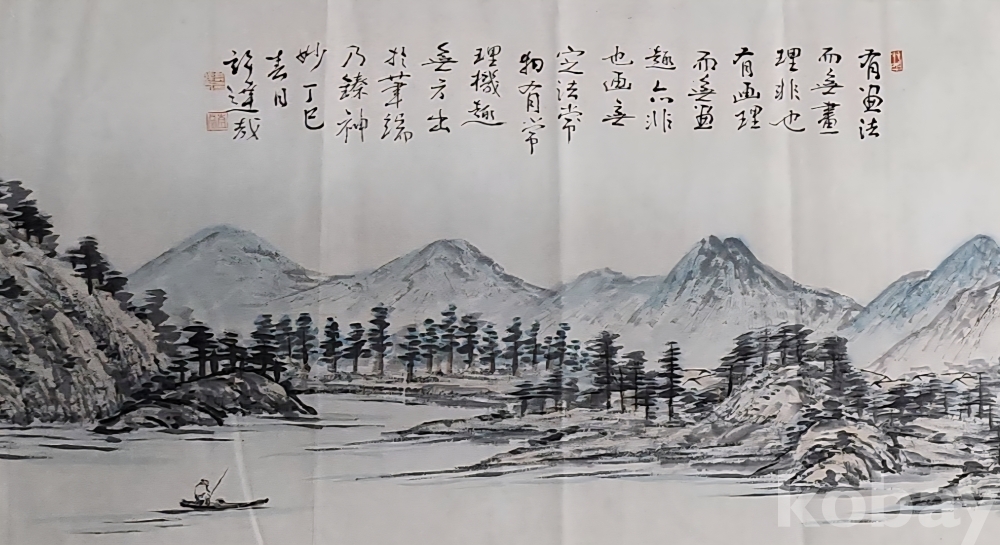 有画法
而無畫
理非也
有画理
而無画
趣亦非
也画無
定法常
物有常
理機趣
無方出
於筆端
乃臻神
妙丁巳
春日
許達哉
kobay